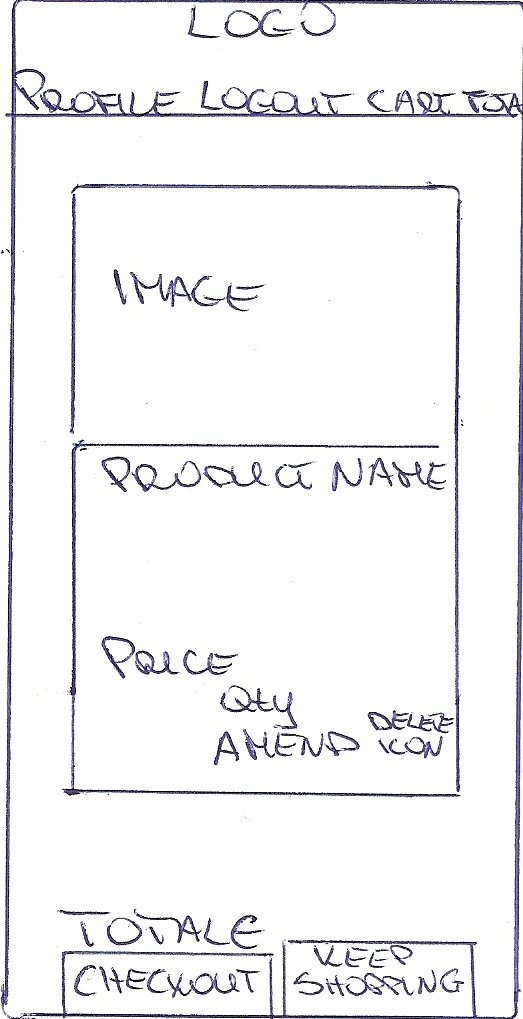 LOGO
PROFILE LOGOUT CART TOTA
IMAGE
PRODUCT NAME
PRICE
Qty
AMEND DELETE ICON
TOTALE
CHECKOUT
KEEP
SHOPPING